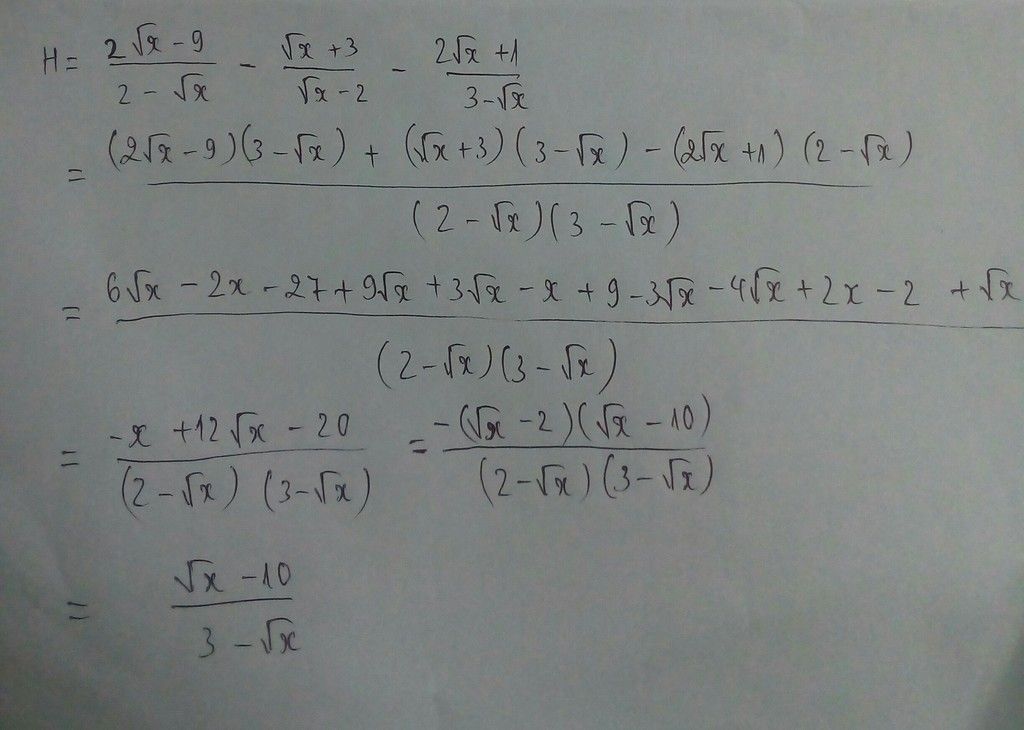 H = (2√x − 9)/(2 − √x) − (√x + 3)/(√x − 2) − (2√x + 1)/(3 − √x)
= ((2√x − 9)(3 − √x) + (√x + 3)(3 − √x) − (2√x + 1)(2 − √x))/((2 − √x)(3 − √x))
= (6√x − 2x − 27 + 9√x + 3√x − x + 9 − 3√x − 4√x + 2x − 2 + √x)/((2 − √x)(3 − √x))
= (−x + 12√x − 20)/((2 − √x)(3 − √x)) = (−(√x − 2)(√x − 10))/((2 − √x)(3 − √x))
= (√x − 10)/(3 − √x)